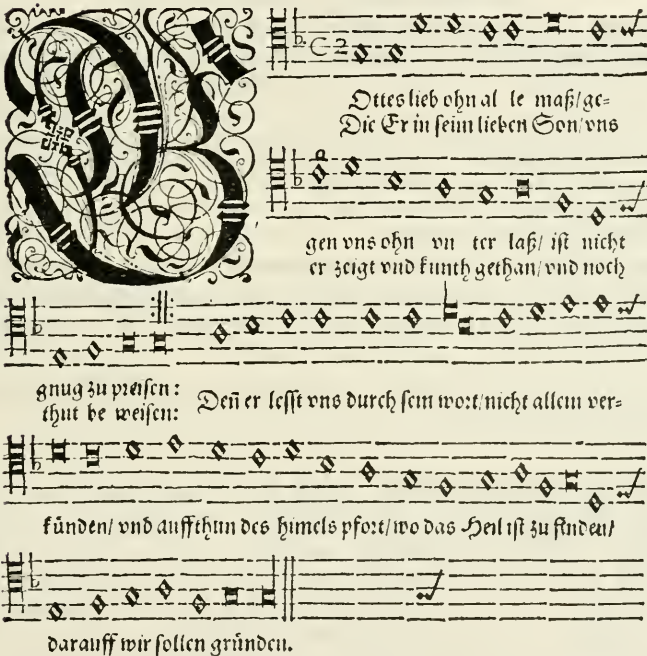 GOttes lieb ohn al le maß/ ge=
Die Er in seim lieben Son/ vns
gen vns ohn vn ter laß/ ist nicht
er zeigt vnd kunth gethan/ vnd noch
gnug zu preisen:
thut be weisen: Den̄ er lesst vns durch sein wort/ nicht allein ver=
künden/ vnd auffthun des himels pfort/ wo das Heil ist zu finden/
darauff wir sollen gründen.